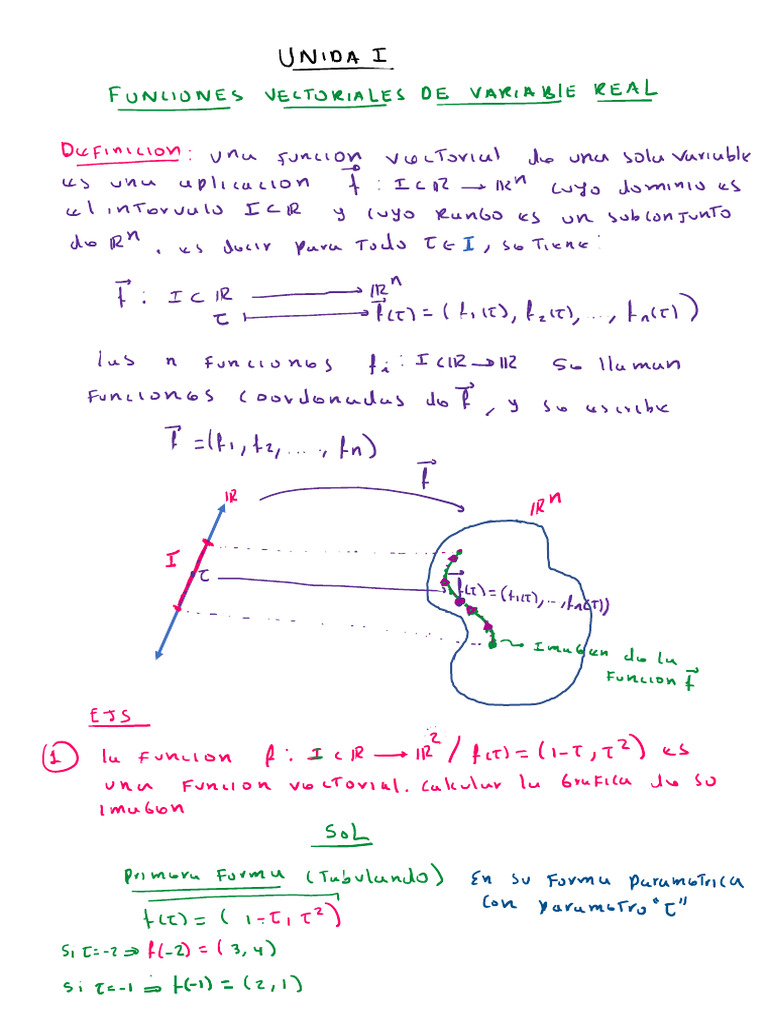 UNIDA I
FUNCIONES VECTORIALES DE VARIABLE REAL
DEFINICION: una funcion vectorial de una sola variable
es una aplicacion f⃗ : I⊂ℝ → ℝⁿ cuyo dominio es
el intervalo I⊂ℝ y cuyo Rango es un subconjunto
de ℝⁿ. es decir para todo t∈I, se tiene:
f⃗ : I⊂ℝ → ℝⁿ
t ↦ f⃗(t) = (f₁(t), f₂(t), ..., fₙ(t))
las n funciones fᵢ : I⊂ℝ → ℝ se llaman
funciones coordenadas de f⃗, y se escribe
f⃗ = (f₁, f₂, ...., fₙ)
f⃗
ℝ
ℝⁿ
I
t
f⃗(t) = (f₁(t), ..., fₙ(t))
Imagen de la
funcion f⃗
EJS
1 la funcion f : I⊂ℝ → ℝ² / f(t) = (1-t, t²) es
una funcion vectorial. calcular la grafica de su
imagen
SOL
Primera forma (Tabulando) En su forma parametrica
con parametro "t"
f(t) = (1-t, t²)
Si t=-2 ⇒ f(-2) = (3,4)
Si t=-1 ⇒ f(-1) = (2,1)